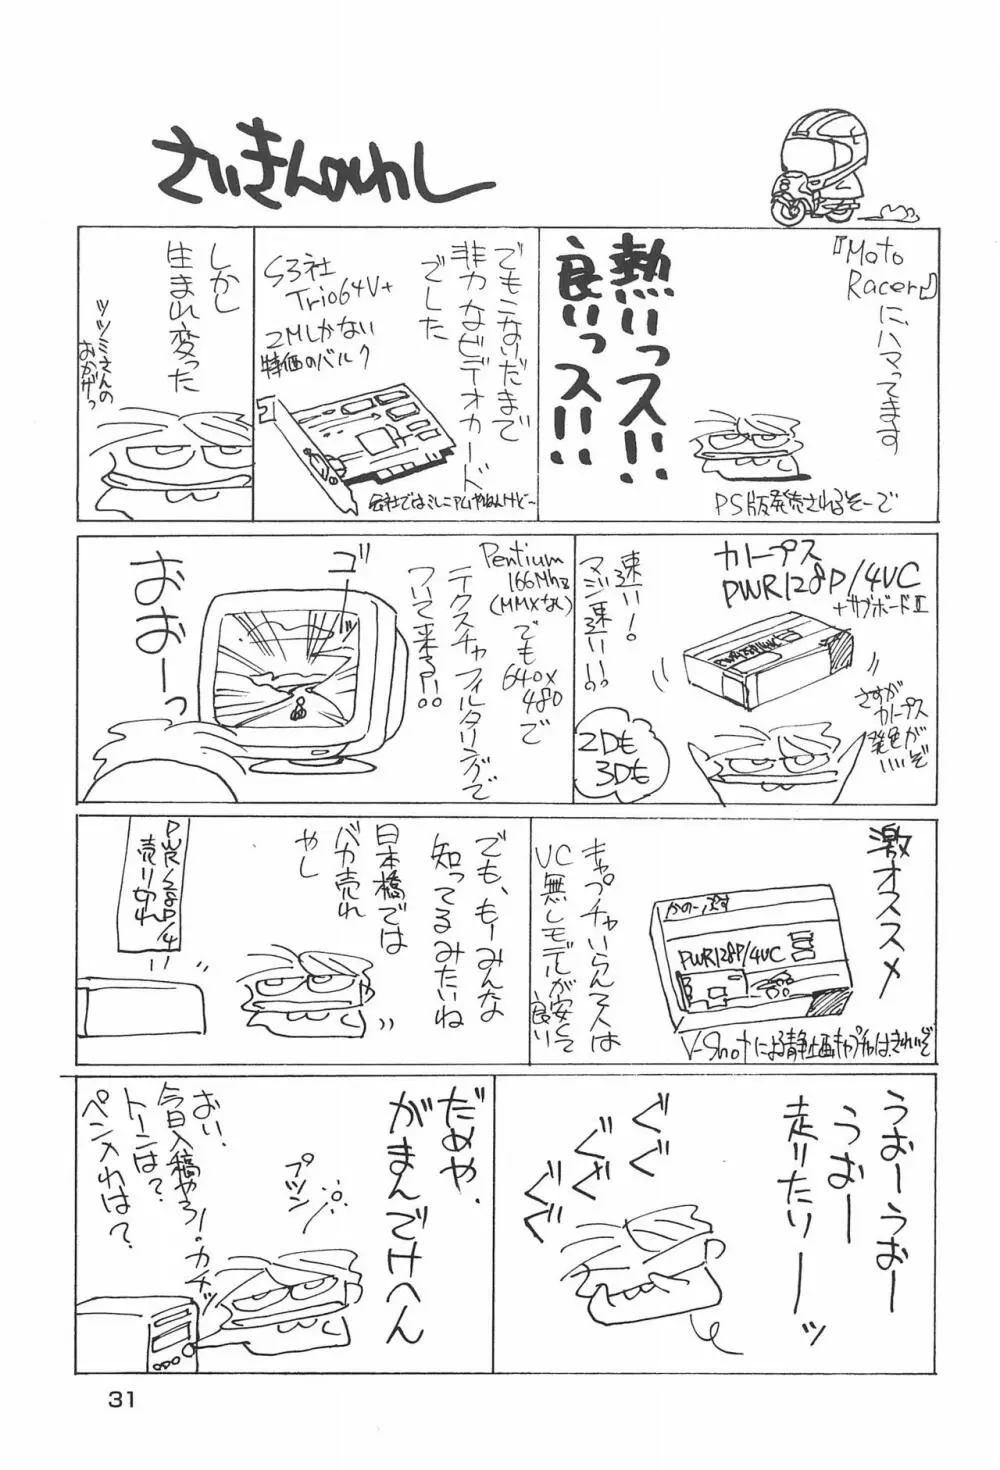 さいきんのわし
『Moto
Racer』
に、ハマってます
熱いっス!!
良いっス!!
PS版発売されるそーで
でもこないだまで
非力なビデオカード
でした
S3社
Trio64V+
2Mしかない
特価のバルク
会社ではミレニアムやねんけど〜
しかし
生まれ変った
ツツミさんの
おかげっ
カノープス
PWR128P/4VC
+サブボードII
速い!
マジ速い!!
さすが
カノープス
発色が
いいぞ
2Dも
3Dも
Pentium
166Mhz
(MMXなし)
でも
640×
480
で
テクスチャフィルタリングで
ついて来る!!
ゴー
おおーっ
激オススメ
かのーぷす
PWR128P/4VC
V-Shotによる静止画キャプチャはきれいぞ
キャプチャいらん人は
VC無しモデルが安くて
良い
でも、もーみんな
知ってるみたいね
日本橋では
バカ売れ
やし
PWR128P/4
売り切れ
うおーうおー
うおー
走りたりーーッ
ぐぐ
ぐぐ
ぐぐ
だめや、
がまんでけへん
プツン
おい、
今日入稿やろ!
トーンは?
ペン入れは?
カチッ
31